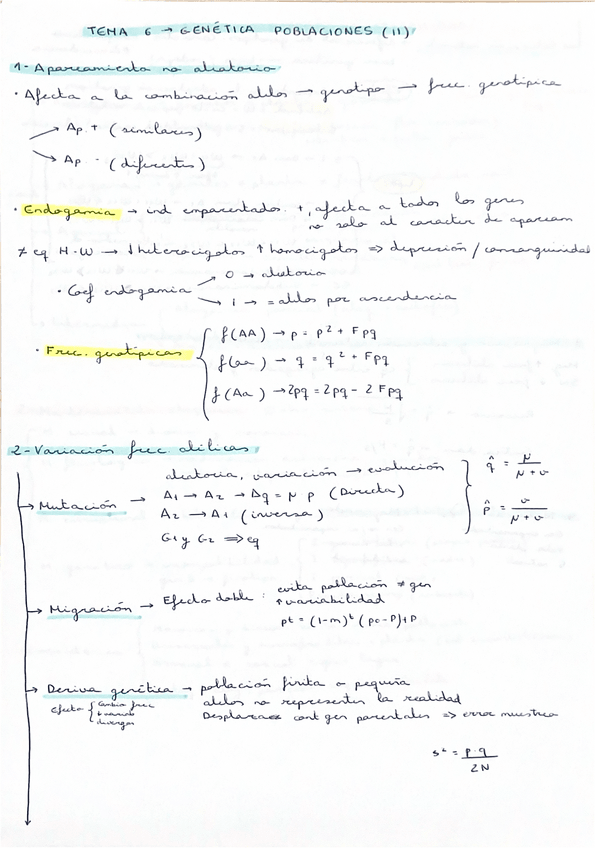 TEMA 6 → GENÉTICA POBLACIONES (II)
1- Apareamiento no aleatorio
· Afecta a la combinación alelos → genotipo → frec. genotípica
Ap. + (similares)
Ap. - (diferentes)
· Endogamia → ind emparentados. +, afecta a todos los genes
no solo al carácter de apaream
≠ eq H-W → ↓heterocigotos ↑homocigotos ⇒ depresión / consanguinidad
· Coef endogamia
0 → aleatoria
1 → = alelos por ascendencia
· Frec. genotípicas
f(AA) → p = p² + Fpq
f(aa) → q = q² + Fpq
f(Aa) → 2pq = 2pq - 2Fpq
2- Variación frec. alélicas
→ Mutación → aleatoria, variación → evolución
A1 → A2 → Δq = μ p (Directa)
A2 → A1 (inversa)
G1 y G2 ⇒ eq
q̂ = μ / μ + v
p̂ = v / μ + v
→ Migración → Efecto doble: evita población ≠ gen
↑variabilidad
pt = (1-m)ᵗ (po-P)+P
→ Deriva genética → población finita o pequeña
alelos no representen la realidad
cont gen parentales ⇒ error muestra
Efecto
Cambia frec
variab
divergen
s² = p·q / 2N